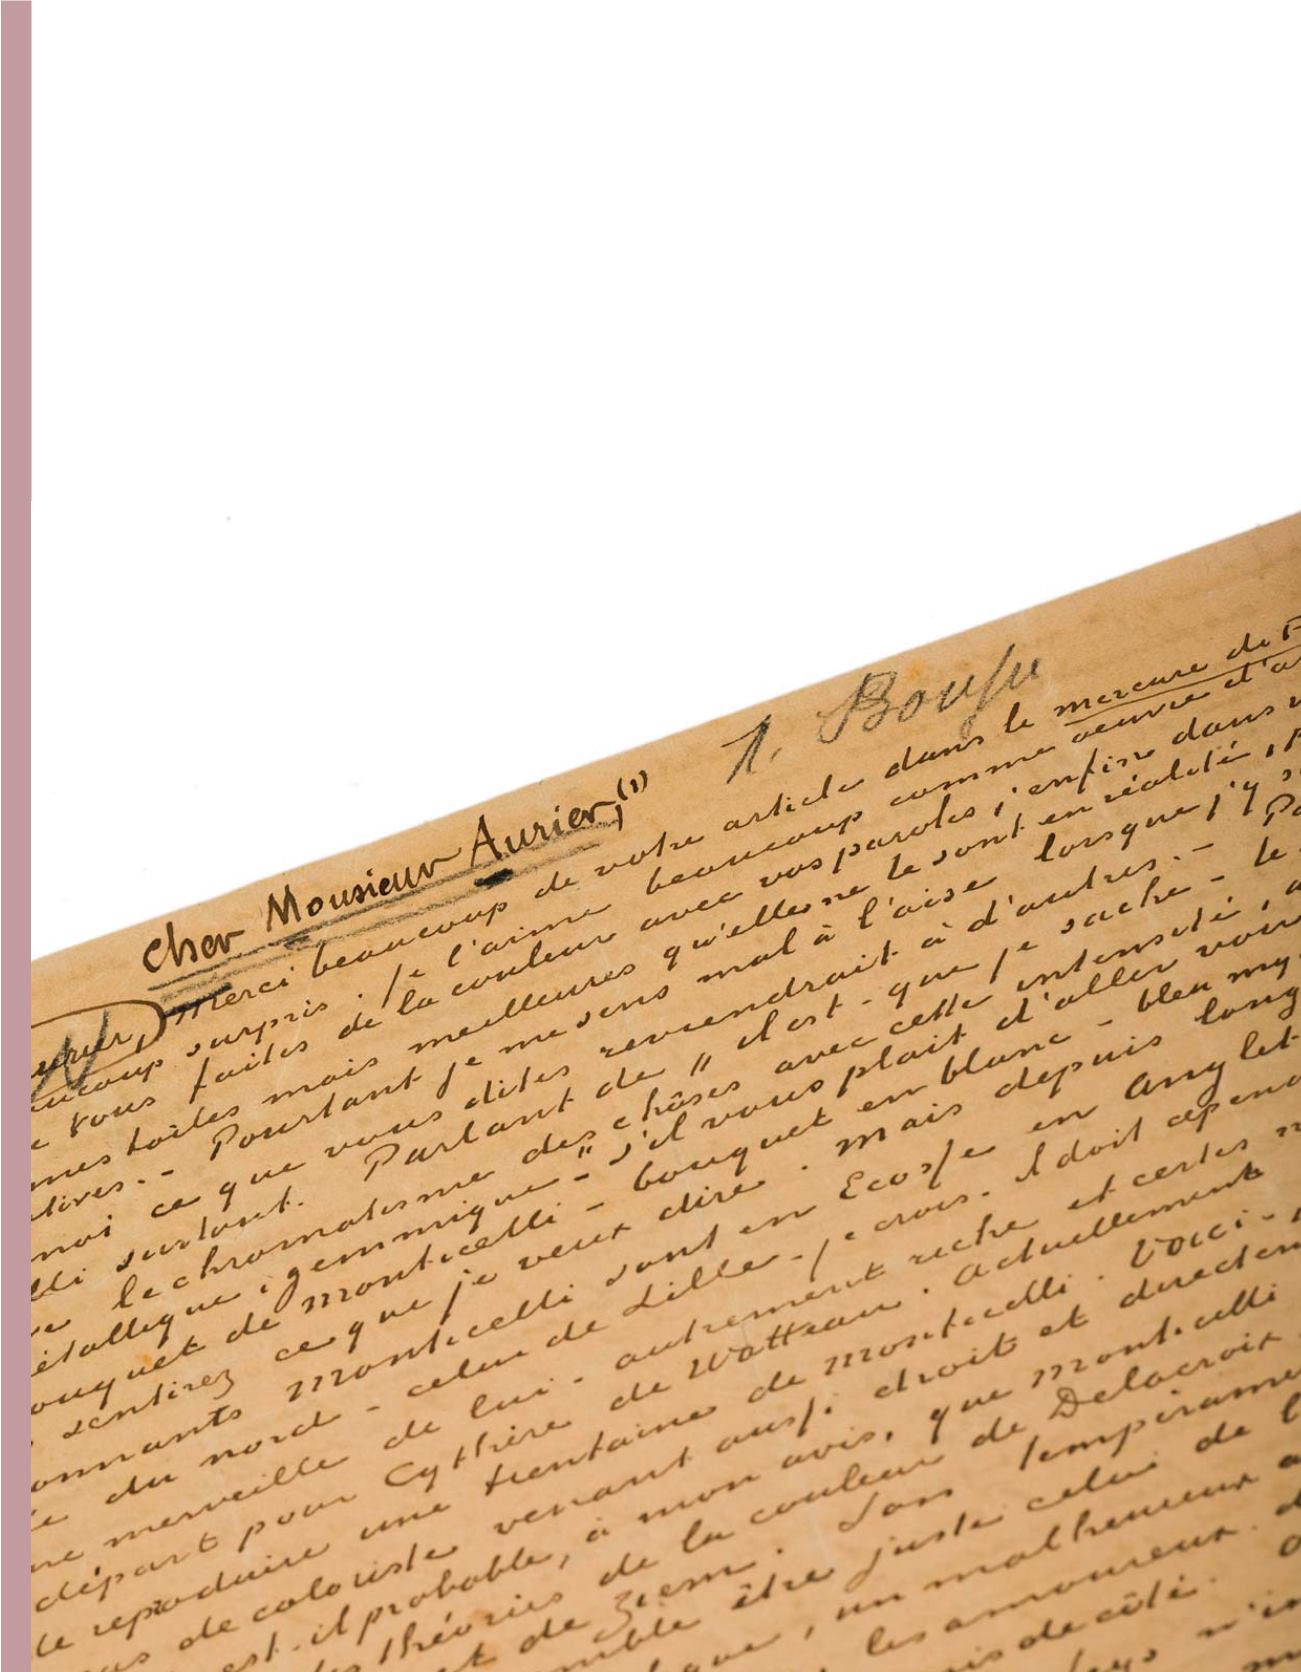 Cher Monsieur Aurier,(1) 1. Boussu
urier, Merci beaucoup de votre article dans le mercure de F
ucoup surpris. je l'aime beaucoup comme oeuvre d'a
vous faites de la couleur avec vos paroles, enfin dans
mes toiles mais meilleures qu'elles ne le sont en réalité,
tives. - Pourtant je me sens mal à l'aise lorsque j'y s
moi ce que vous dites reviendrait à d'autres. -
lli surtout. Parlant de „ il est - que je sache - le
le chromatisme des choses avec cette intensité,
étallique, gemmique - " s'il vous plait d'aller voir
ouquet de Monticelli - bouquet en blanc - bleu my
sentirez ce que je veux dire. Mais depuis long
onnants Monticelli sont en Ecosse en Anglet
du nord - celui de Lille - je crois. il doit cepend
ne merveille de lui - autrement riche et certes
départ pour Cythère de Watteau. Actuellement
te reproduire une trentaine de Monticelli. Voici -
as de coloriste venant aussi droit et directem
est-il probable, à mon avis, que Monticelli
théories de la couleur de Delacroix
et de Ziem. Son tempérame
mble être juste celui de
gue, un malheureux
les amoureux
is de côté.